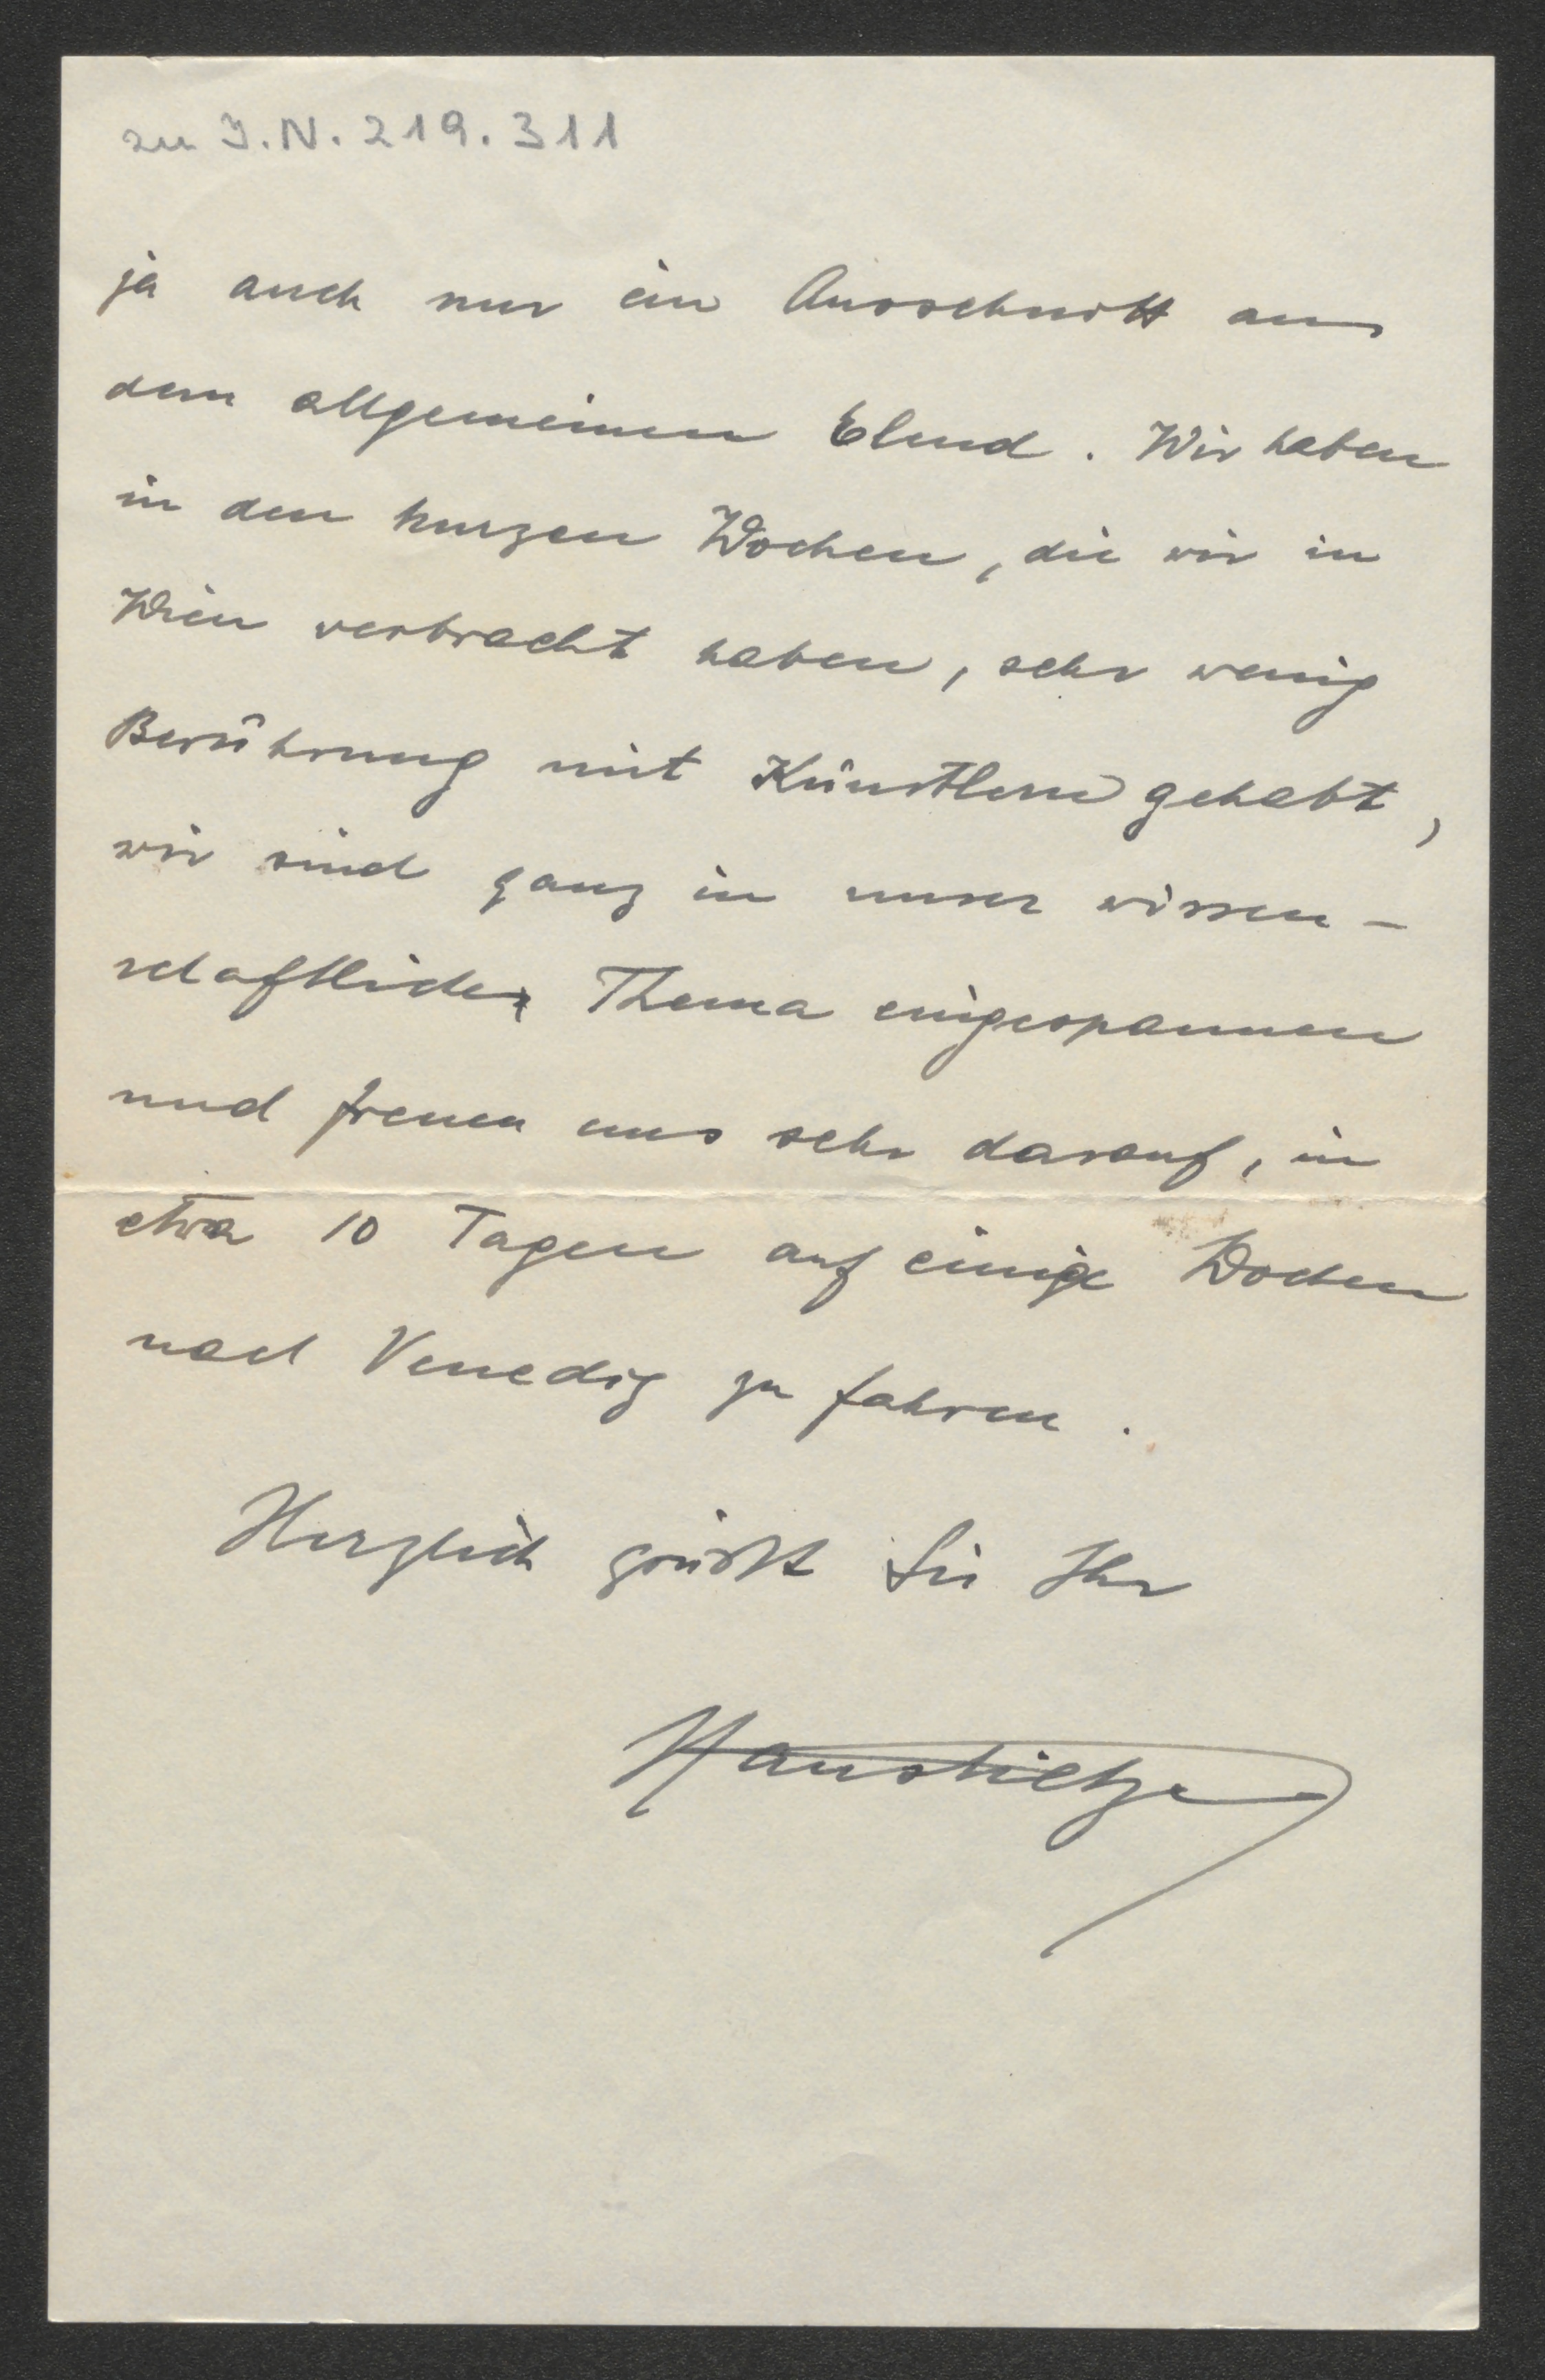 zu I.N. 219.311
ja auch nur ein Ausschnitt aus
dem allgemeinen Elend. Wir haben
in den kurzen Wochen, die wir in
Wien verbracht haben, sehr wenig
Berührung mit Künstlern gehabt,
wir sind ganz in unser wissen-
schaftliches Thema eingespannen
und freuen uns sehr darauf, in
etwa 10 Tagen auf einige Wochen
nach Venedig zu fahren.
Herzlich grüßt Sie Ihr
Hans Tietze